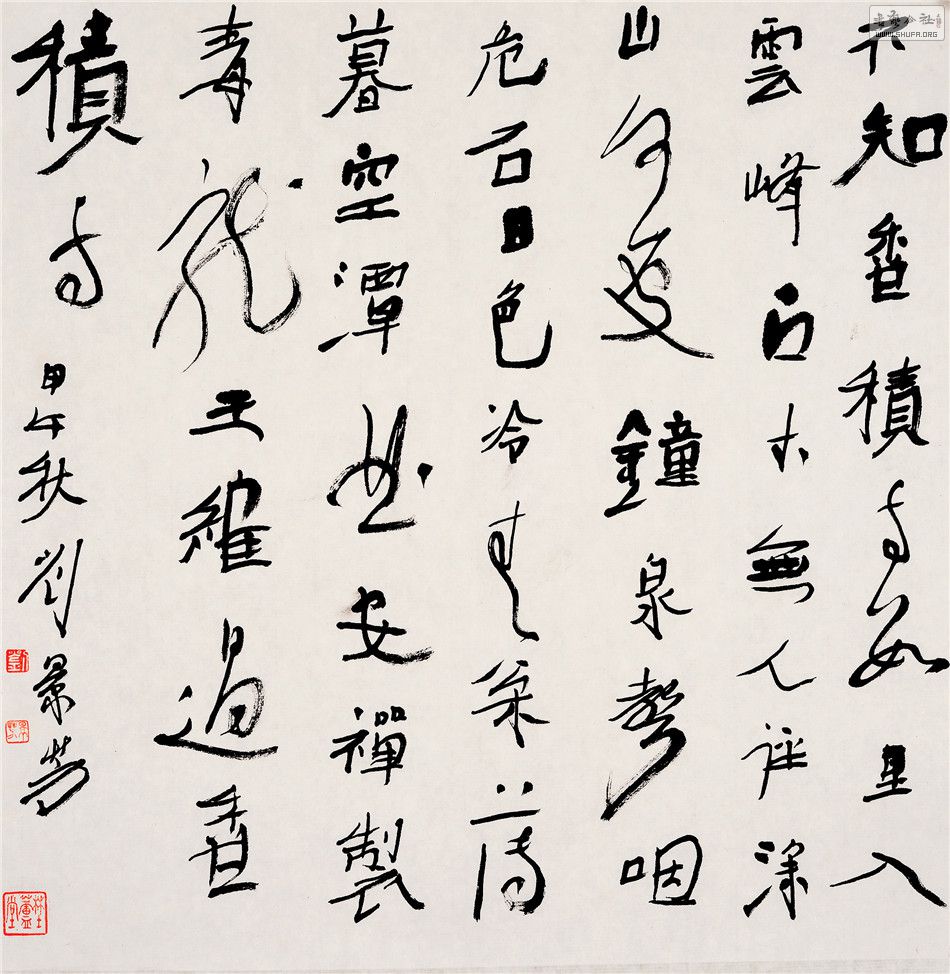 不知香積寺數里入
雲峰古木無人徑深
山何處鐘泉聲咽
危石日色冷青松薄
暮空潭曲安禪製
毒龍王維過香
積寺甲午秋劉景芳
WWW.SHUFA.ORG